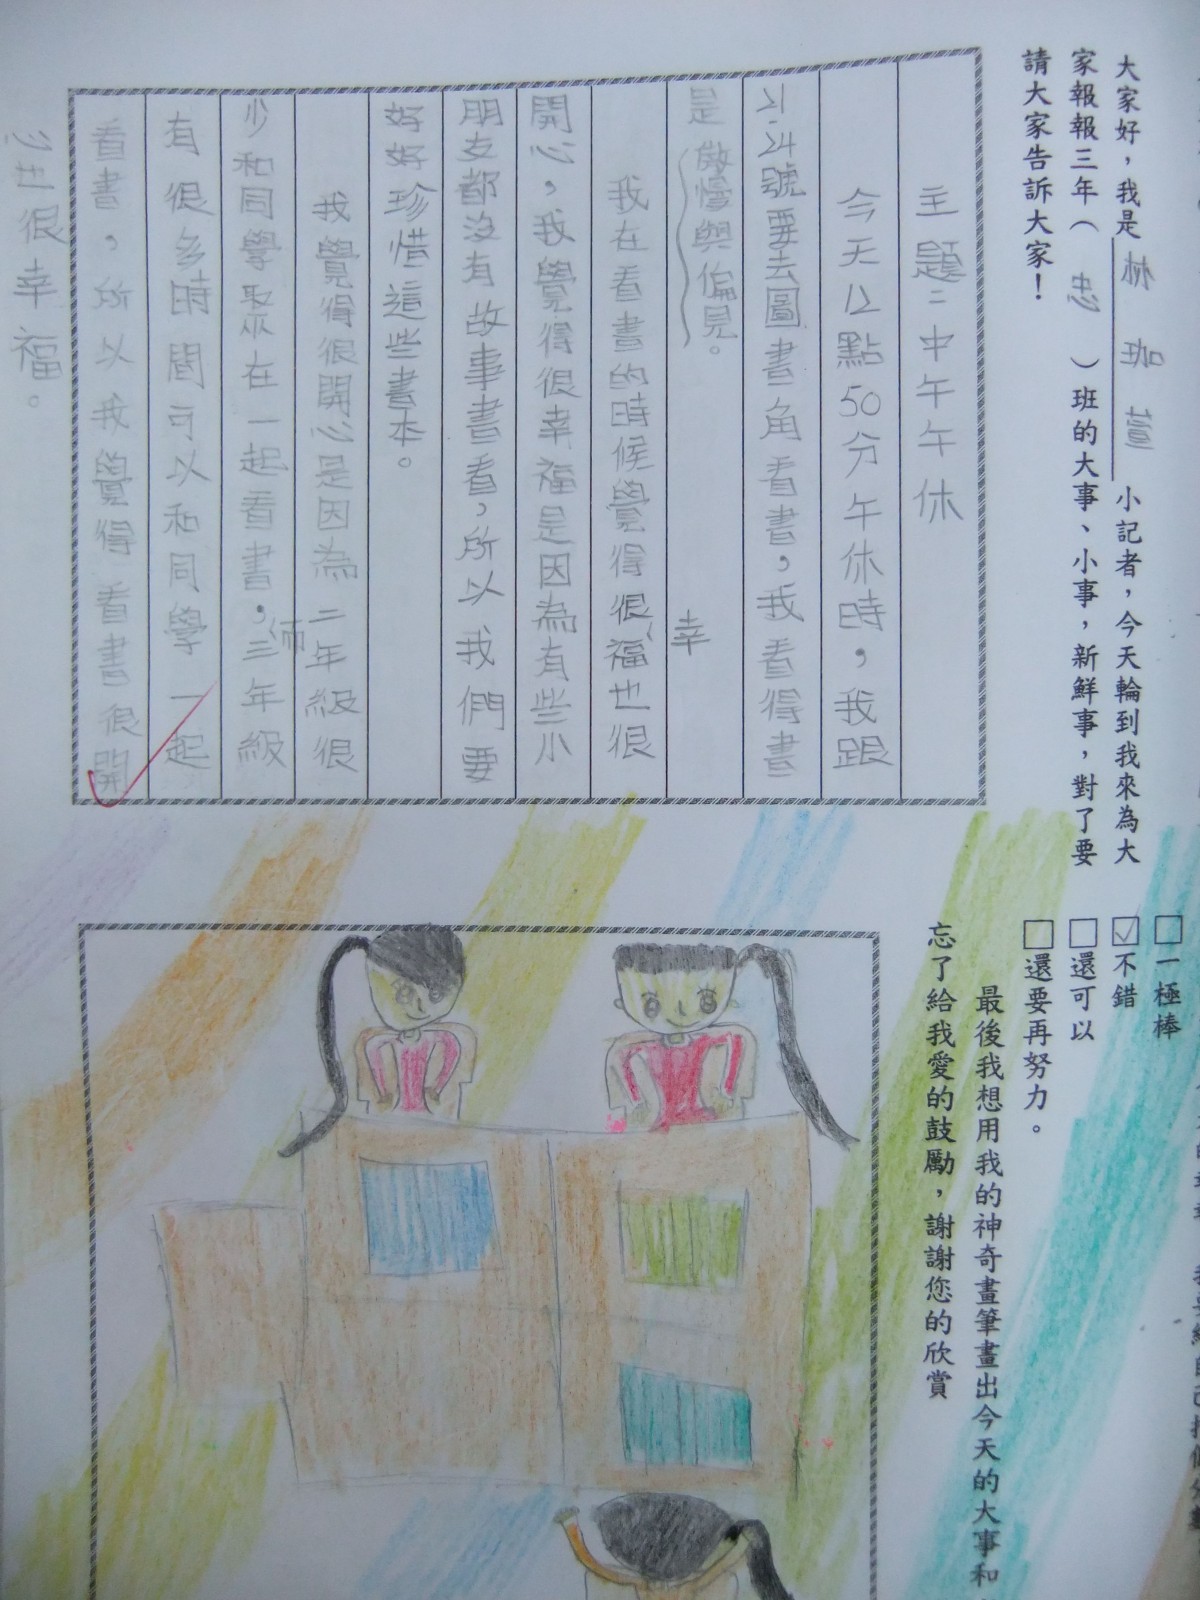 大家好，我是林珈萱小記者，今天輪到我來為大
家報報三年（忠）班的大事、小事，新鮮事，對了要
請大家告訴大家！
主題：中午午休
今天12點50分午休時，我跟
21.24號要去圖書角看書，我看得書
是傲慢與偏見。
我在看書的時候覺得很幸福也很
開心，我覺得很幸福是因為有些小
朋友都沒有故事書看，所以我們要
好好珍惜這些書本。
我覺得很開心是因為二年級很
少和同學聚在一起看書，而三年級
有很多時間可以和同學一起
看書，所以我覺得看書很開
心也很幸福。
□一極棒
☑不錯
□還可以
□還要再努力。
最後我想用我的神奇畫筆畫出今天的大事和
忘了給我愛的鼓勵，謝謝您的欣賞